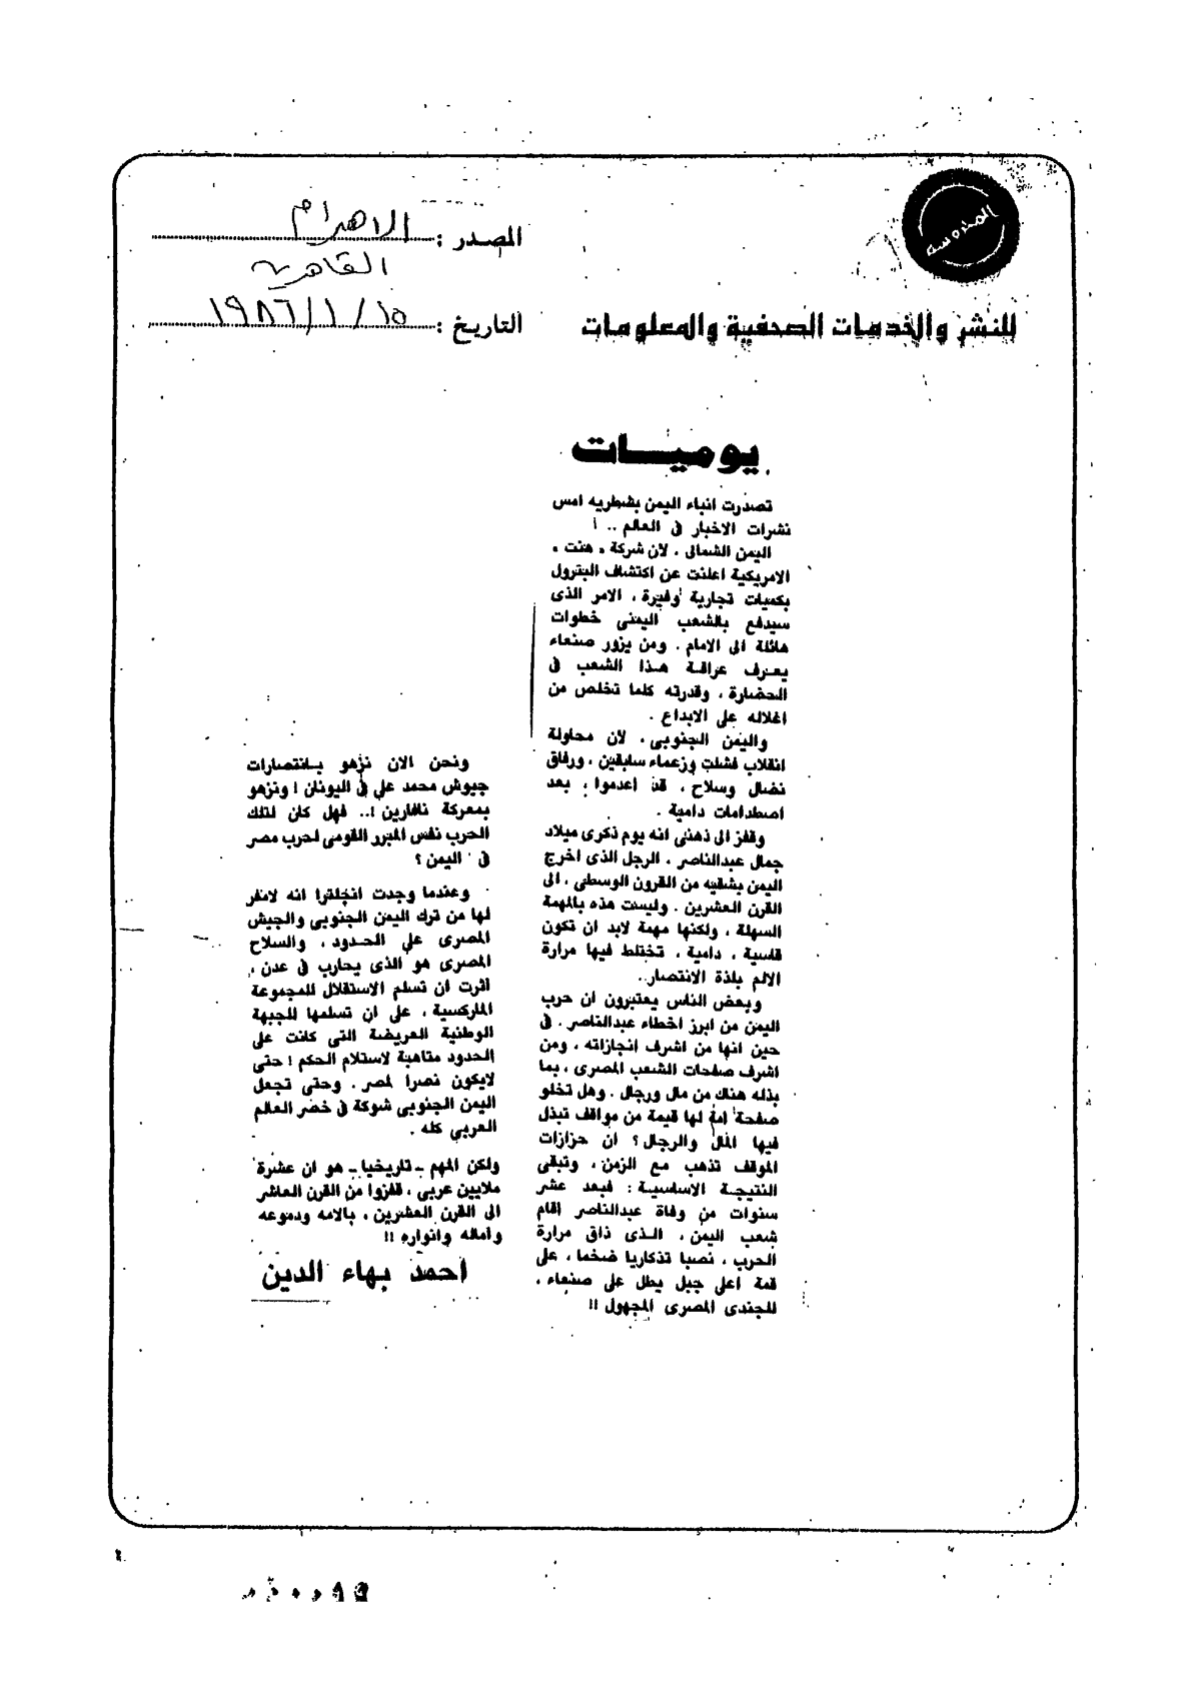 المحروسة
للنشر والخدمات الصحفية والمعلومات
المصدر : الاهرام
القاهرية
التاريخ : ١٥ / ١ / ١٩٨٦
يوميات
تصدرت انباء اليمن بشطريه امس
نشرات الاخبار فى العالم .. !
اليمن الشمالى ، لان شركة « هنت »
الامريكية اعلنت عن اكتشاف البترول
بكميات تجارية وفيرة ، الامر الذى
سيدفع بالشعب اليمنى خطوات
هائلة الى الامام . ومن يزور صنعاء
يعرف عراقة هذا الشعب فى
الحضارة ، وقدرته كلما تخلص من
اغلاله على الابداع .
واليمن الجنوبى ، لان محاولة
انقلاب فشلت وزعماء سابقين ، ورفاق
نضال وسلاح ، قد اعدموا ، بعد
اصطدامات دامية .
وقفز الى ذهنى انه يوم ذكرى ميلاد
جمال عبدالناصر ، الرجل الذى اخرج
اليمن بشقيه من القرون الوسطى ، الى
القرن العشرين . وليست هذه بالمهمة
السهلة ، ولكنها مهمة لابد ان تكون
قاسية ، دامية ، تختلط فيها مرارة
الالم بلذة الانتصار..
وبعض الناس يعتبرون ان حرب
اليمن من ابرز اخطاء عبدالناصر . فى
حين انها من اشرف انجازاته ، ومن
اشرف صفحات الشعب المصرى ، بما
بذله هناك من مال ورجال . وهل تخلو
صفحة امة لها قيمة من مواقف تبذل
فيها المال والرجال؟ ان حزازات
الموقف تذهب مع الزمن ، وتبقى
النتيجة الاساسية : فبعد عشر
سنوات من وفاة عبدالناصر اقام
شعب اليمن ، الذى ذاق مرارة
الحرب ، نصبا تذكاريا ضخما ، على
قمة اعلى جبل يطل على صنعاء ،
للجندى المصرى المجهول !!
ونحن الان نزهو بانتصارات
جيوش محمد على فى اليونان ! ونزهو
بمعركة نافارين !.. فهل كان لتلك
الحرب نفس المبرر القومى لحرب مصر
فى اليمن ؟
وعندما وجدت انجلترا انه لامفر
لها من ترك اليمن الجنوبى والجيش
المصرى على الحدود ، والسلاح
المصرى هو الذى يحارب فى عدن ،
اثرت ان تسلم الاستقلال للمجموعة
الماركسية ، على ان تسلمها للجبهة
الوطنية العريضة التى كانت على
الحدود متاهبة لاستلام الحكم ! حتى
لايكون نصرا لمصر . وحتى تجعل
اليمن الجنوبى شوكة فى خصر العالم
العربي كله .
ولكن المهم - تاريخيا - هو ان عشرة
ملايين عربى ، قفزوا من القرن العاشر
الى القرن العشرين ، بالامه ودموعه
وآماله وانواره !!
احمد بهاء الدين